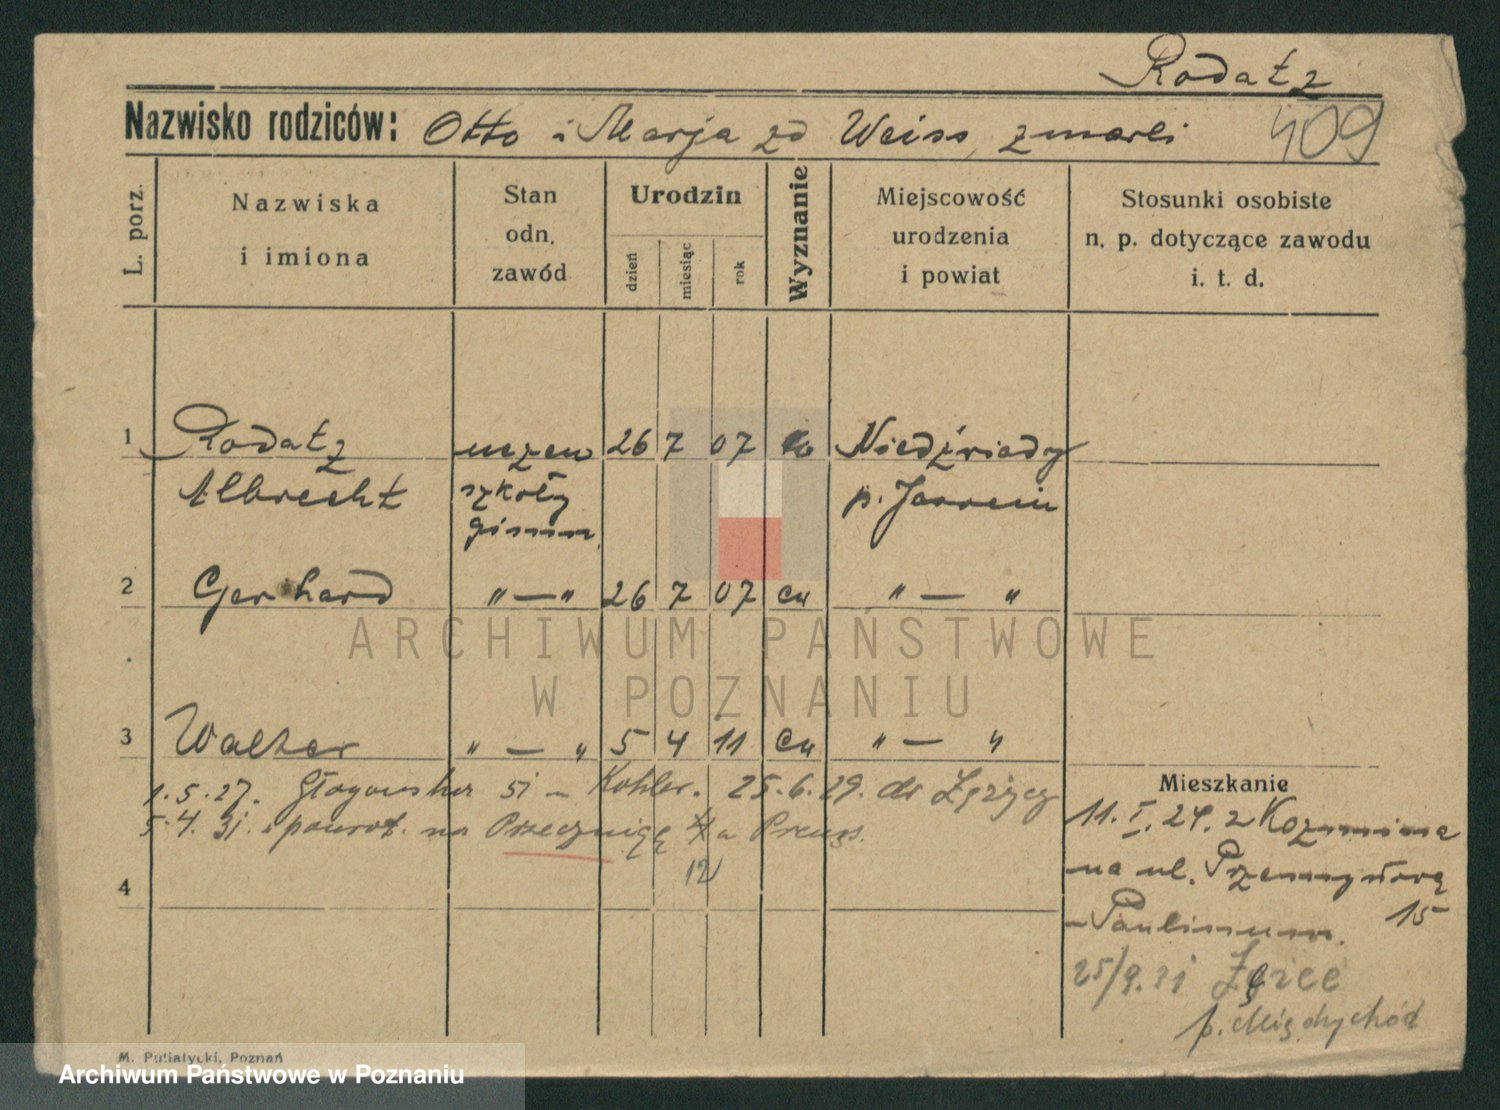 Rodatz
Nazwisko rodziców: Otto i Marja zd Weiss, zmarli 409
L. porz.
Nazwiska
i imiona
Stan
odn.
zawód
Urodzin
dzień
miesiąc
rok
Wyznanie
Miejscowość
urodzenia
i powiat
Stosunki osobiste
n. p. dotyczące zawodu
i. t. d.
1 Rodatz uczeń 26 7 07 ew Niedźwiady
Albrecht szkoły p. Jarocin
gimn.
2 Gerhard " — " 26 7 07 ew " — "
ARCHIWUM PAŃSTWOWE
W POZNANIU
3 Walter " — " 5 4 11 ew " — "
1.5.27. Głogowska 51 Kohler. 25.6.29. do
5.4.31. powrót. na Preuss.
12
4
Mieszkanie
11.I.24. z Koźmina
na ul. Przemysłową
15
- Paulinum.
25/9.31
p. Międzychód
M. Putiatycki, Poznań
Archiwum Państwowe w Poznaniu